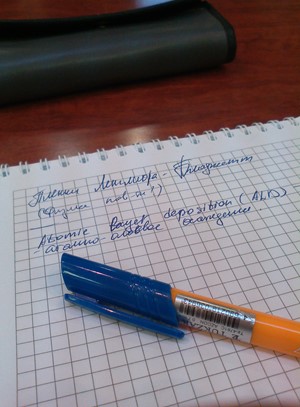 Пленки Ленгмюра-Блоджетт
(физика пов-ти)
Atomic layer deposition (ALD)
атомно-слоевое осаждение